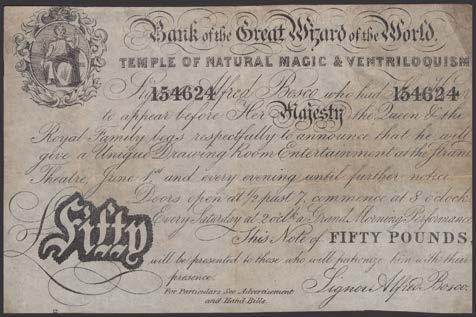 Bank of the Great Wizard of the World.
TEMPLE OF NATURAL MAGIC & VENTRILOQUISM
Alfred Bosco who had
154624 154624
to appear before Her Majesty the Queen & the
Royal Family begs respectfully to announce that he will
give a Unique Drawing Room Entertainment at the Strand
Theatre, June 1st and every evening until further notice
Doors open at ½ past 7, commence at 8 oclock
Every Saturday at 2 oclk a Grand Morning Performance
Fifty
This Note of FIFTY POUNDS.
will be presented to those who will patronize him with their
presence.
For Particulars See Advertisement
and Hand Bills.
Signor Alfred Bosco.